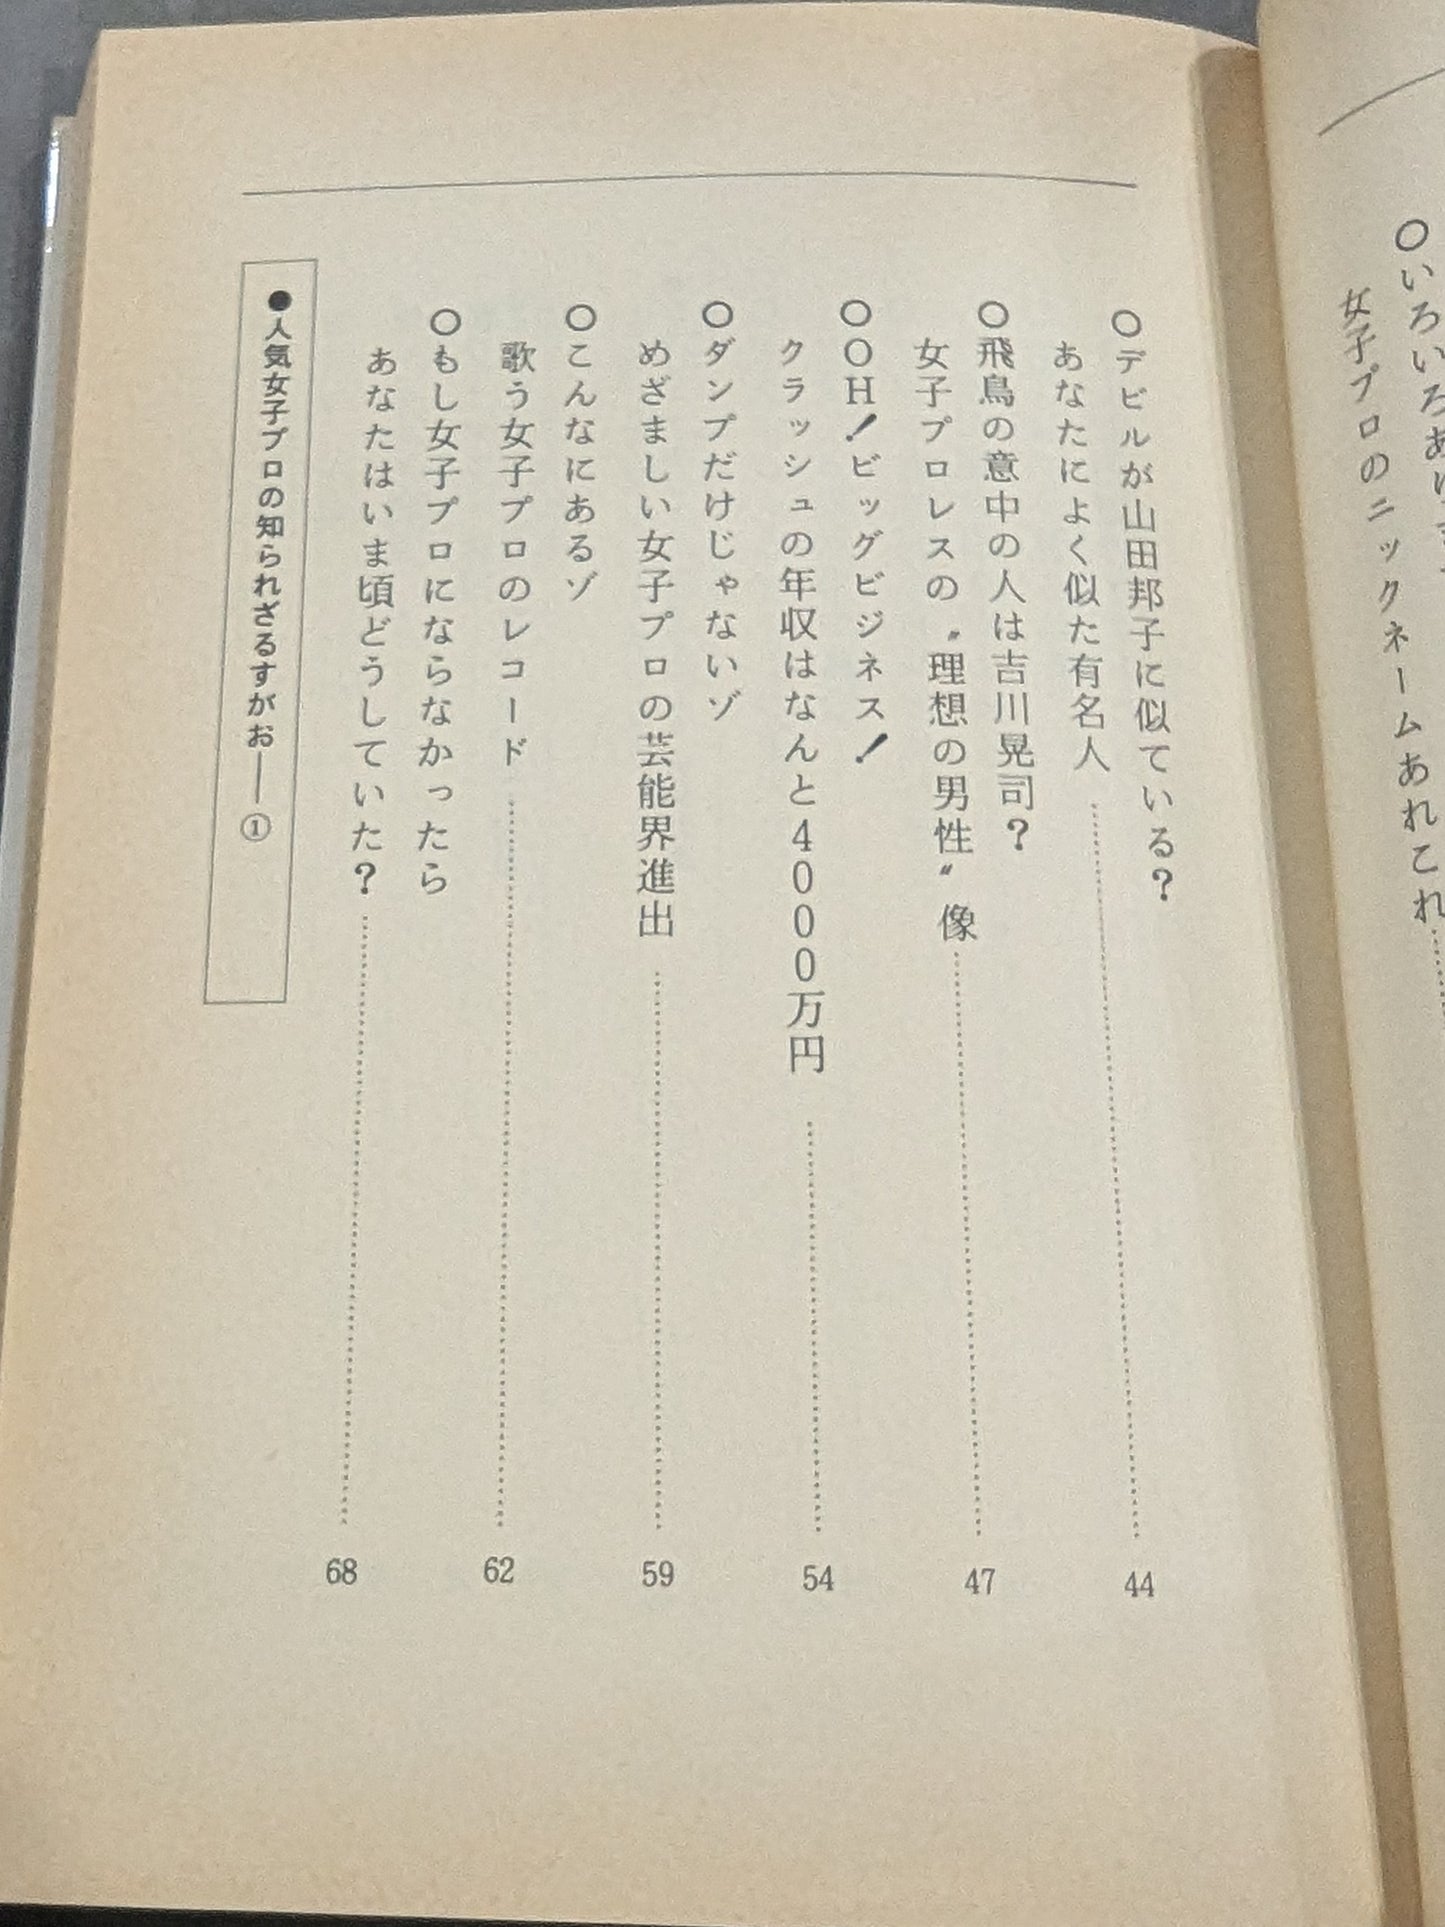 ○いろいろあ
女子プロのニックネームあれこれ
○デビルが山田邦子に似ている？
あなたによく似た有名人
44
○飛鳥の意中の人は吉川晃司？
女子プロレスの〝理想の男性〟像
47
○OH！ビッグビジネス！
クラッシュの年収はなんと4000万円
54
○ダンプだけじゃないゾ
めざましい女子プロの芸能界進出
59
○こんなにあるゾ
歌う女子プロのレコード
62
○もし女子プロにならなかったら
あなたはいま頃どうしていた？
68
●人気女子プロの知られざるすがお──①